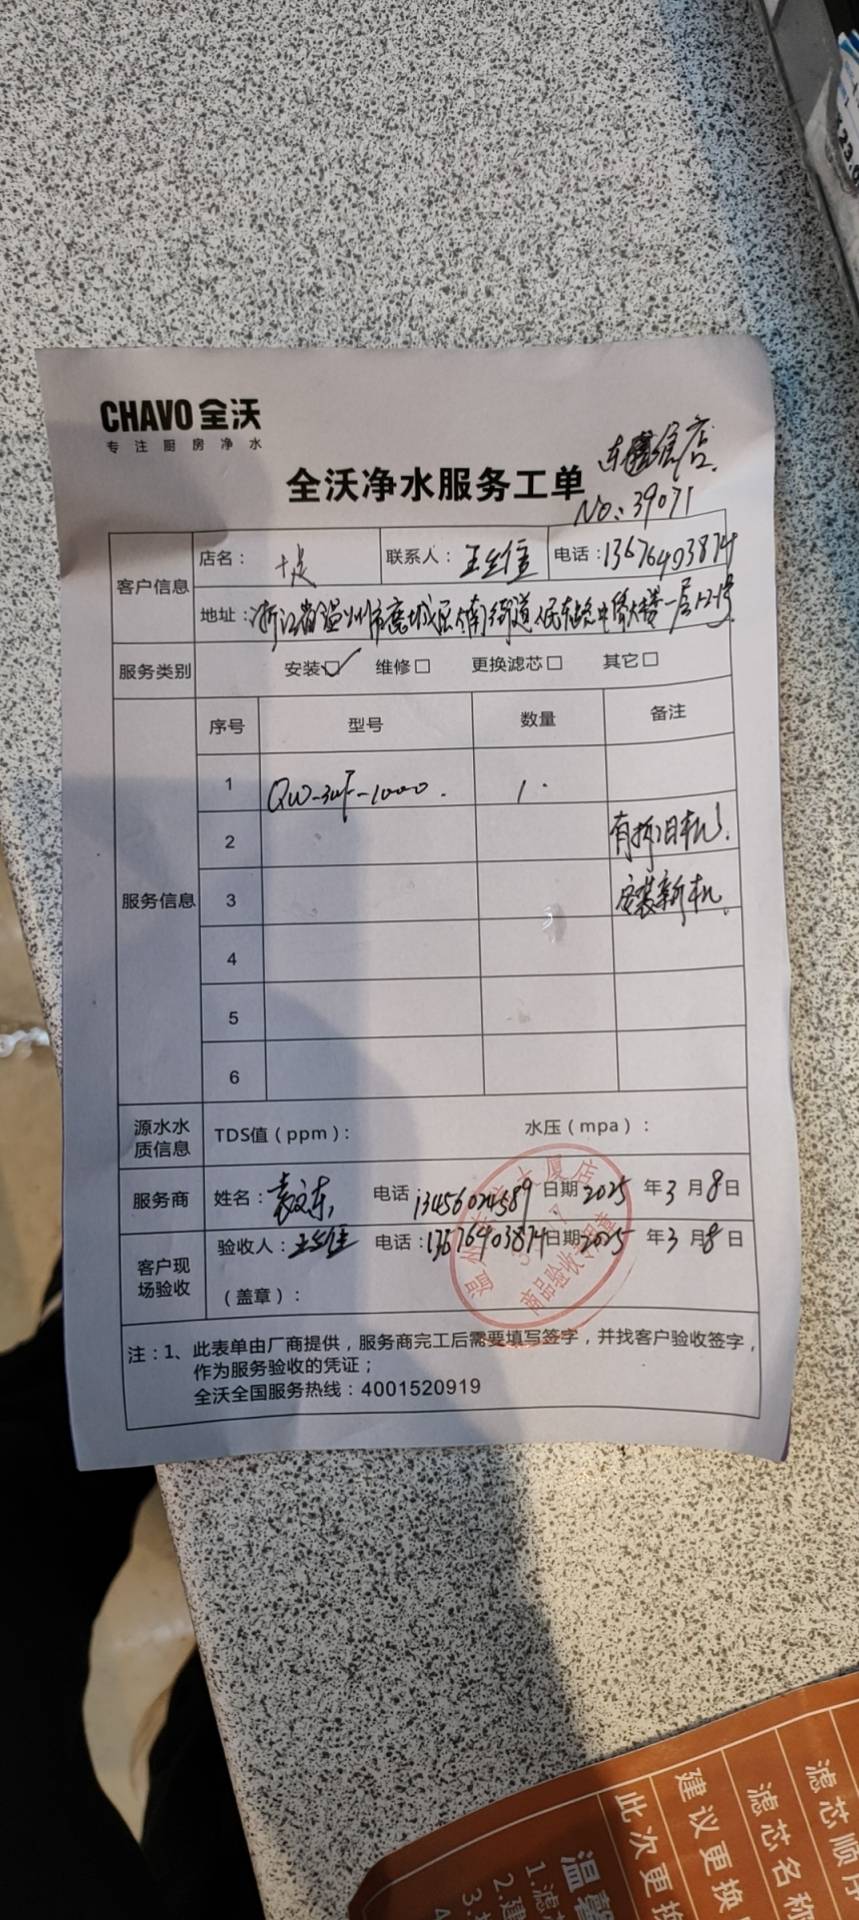 CHAVO 全沃
专注厨房净水
全沃净水服务工单
店
No:39071
客户信息
店名：十足
联系人：王
电话：13676403874
地址：浙江省温州市鹿城区南街道人民东路中侨大楼一层12-13号
服务类别
安装☑ 维修□ 更换滤芯□ 其它□
服务信息
序号 型号 数量 备注
1 QW-3UF-1000. 1.
2 有拆旧机
3 安装新机
4
5
6
源水水质信息
TDS值（ppm）：
水压（mpa）：
服务商
姓名：袁文东
电话 13456024589 日期 2025 年 3 月 8 日
客户现场验收
验收人：王
电话：13676403874 日期 2025 年 3 月 8 日
（盖章）：
大厦店
商品验收专用章
注：1、此表单由厂商提供，服务商完工后需要填写签字，并找客户验收签字，
作为服务验收的凭证；
全沃全国服务热线：4001520919
滤芯顺序
滤芯名称
建议更换
此次更换
温馨
1.滤
2.建
3.
4